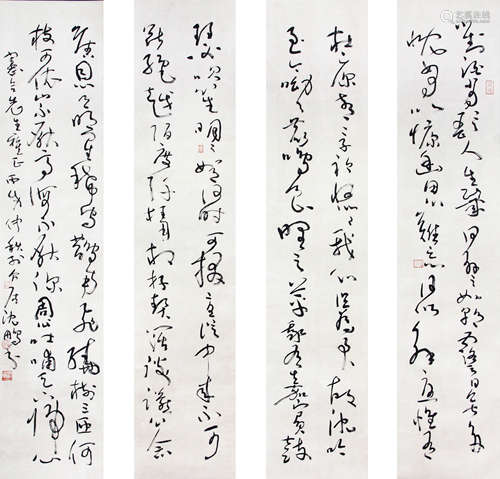 對酒當歌人生幾何譬如朝露去日苦多
慨當以慷憂思難忘何以解憂惟有
杜康青青子衿悠悠我心但為君故沈吟
至今呦呦鹿鳴食野之苹我有嘉賓鼓
瑟吹笙明明如月何時可掇憂從中來不可
斷絕越陌度阡枉用相存契闊談讌心念
舊恩月明星稀烏鵲南飛繞樹三匝何
枝可依山不厭高海不厭深周公吐哺天下歸心
先生雅正丙戌仲秋於介居沈鵬